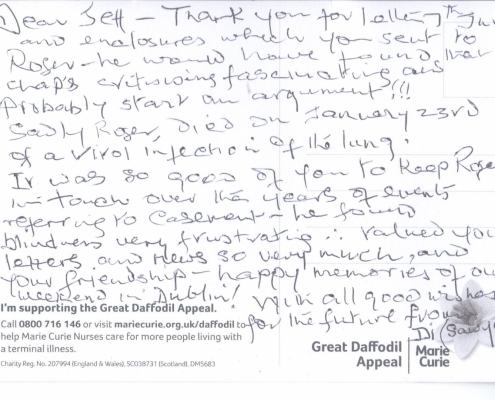 Dear Jeff – Thank you for letter
and enclosures which you sent to
Roger – he would have found that
chap's critisising fascinating and
Probably start an argument!!!
Sadly Roger, died on January 23rd
of a virol infection of the lung.
It was so good of you to keep Roger
in touch over the years of events
referring to Casement – he found
blindness very frustrating ∴ valued your
letters and news so very much, and
your friendship – happy memories of our
weekend in Dublin! With all good wishes
for the future from
Di
I'm supporting the Great Daffodil Appeal.
Call 0800 716 146 or visit mariecurie.org.uk/daffodil to
help Marie Curie Nurses care for more people living with
a terminal illness.
Charity Reg. No. 207994 (England & Wales), SC038731 (Scotland), DM5683
Great Daffodil
Appeal
Marie
Curie